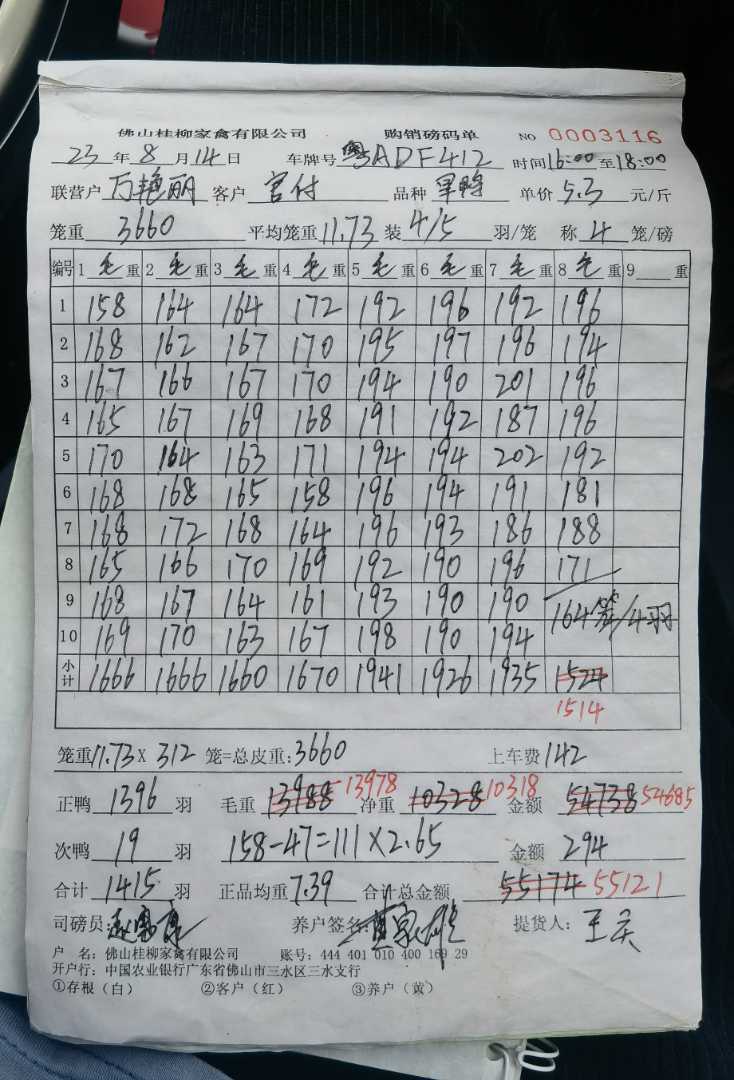 佛山桂柳家禽有限公司 购销磅码单 NO 0003116
23年8月14日 车牌号粤ADF412 时间16:00至18:00
联营户万艳丽 客户官付 品种 单价5.3元/斤
笼重3660 平均笼重11.73 装4/5羽/笼 称4笼/磅
编号 1毛重 2毛重 3毛重 4毛重 5毛重 6毛重 7毛重 8毛重 9 重
1 158 164 164 172 192 196 192 196
2 168 162 167 170 195 197 196 194
3 167 166 167 170 194 190 201 196
4 165 167 169 168 191 192 187 196
5 170 164 163 171 194 194 202 192
6 168 168 165 158 196 194 191 181
7 168 172 168 164 196 193 186 188
8 165 166 170 169 192 190 196 171
9 168 167 164 161 193 190 190 164笼/4羽
10 169 170 163 167 198 190 194
小计 1666 1666 1660 1670 1941 1926 1935 1524
1514
笼重11.73X312笼=总皮重:3660 上车费142
正鸭1396羽 毛重13988 13978 净重10328 10318 金额54738 54685
次鸭19羽 158-47=111×2.65 金额294
合计1415羽 正品均重7.39 合计总金额55174 55121
司磅员: 养户签名: 提货人:
户 名:佛山桂柳家禽有限公司 账号:444 401 010 400 169 29
开户行:中国农业银行广东省佛山市三水区三水支行
①存根(白) ②客户(红) ③养户(黄)